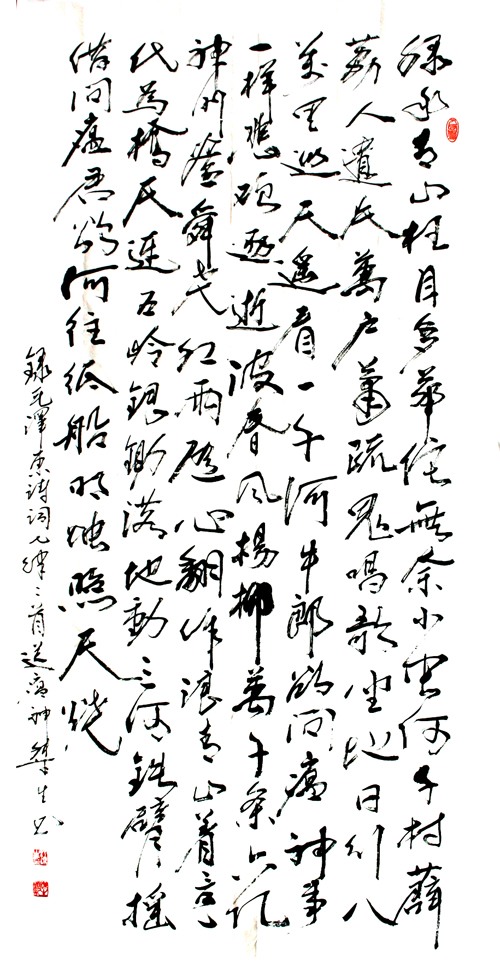 绿水青山枉自多華佗無奈小虫何千村薜
荔人遗矢萬户萧疏鬼唱歌坐地日行八
萬里巡天遥看一千河牛郎欲问瘟神事
一样悲欢逐逝波春风楊柳萬千条六億
神州盡舜尧红雨随心翻作浪青山着意
化为橋天連五岭银锄落地動三河铁臂摇
借问瘟君欲何往纸船明烛照天烧
録毛澤東诗词七律二首送瘟神